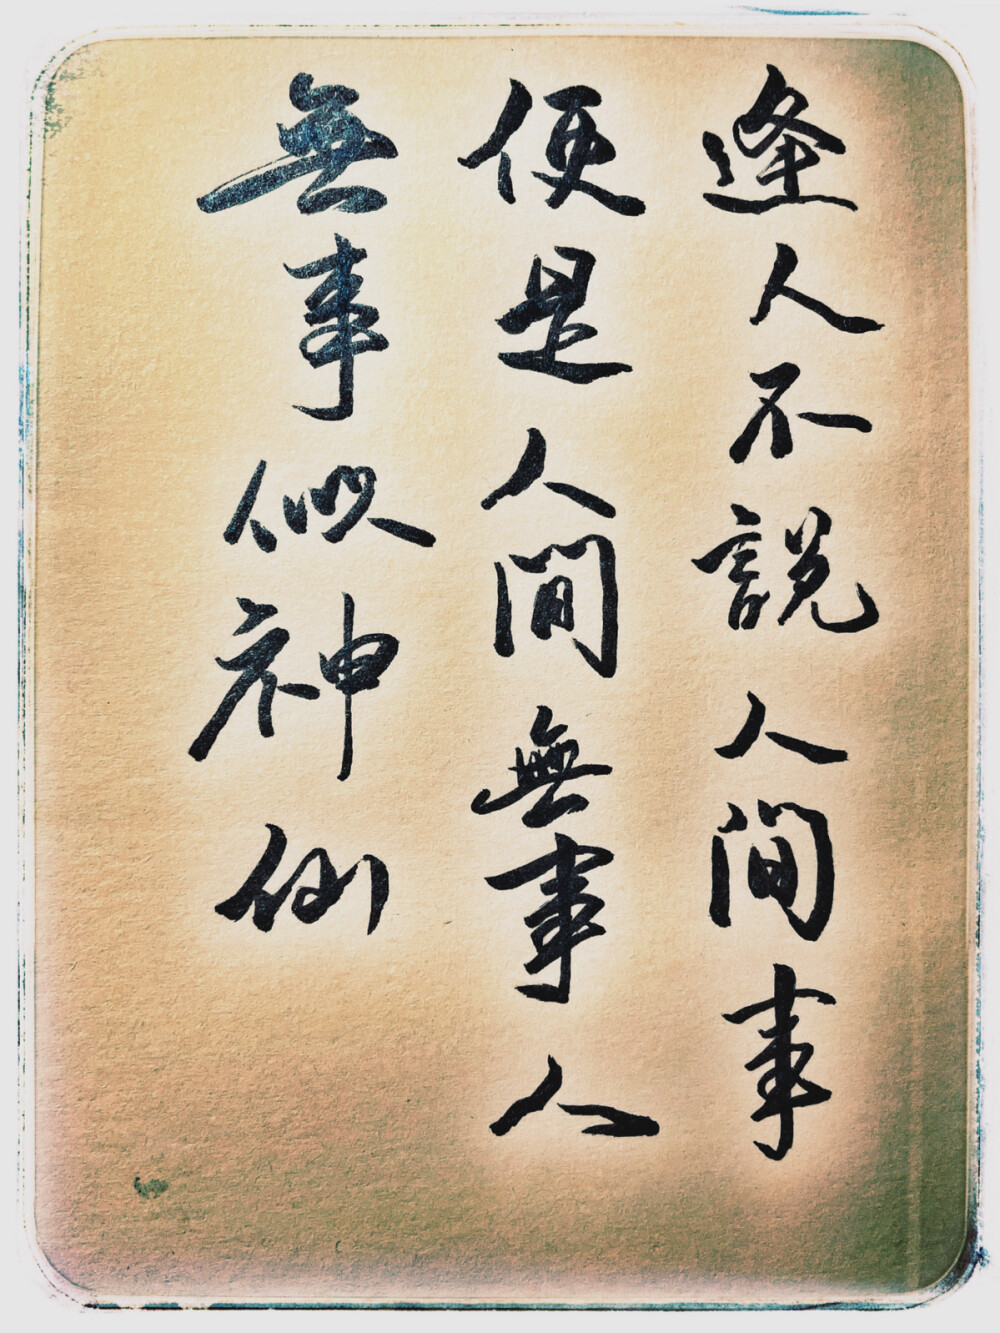 逢人不說人間事
便是人間無事人
無事似神仙